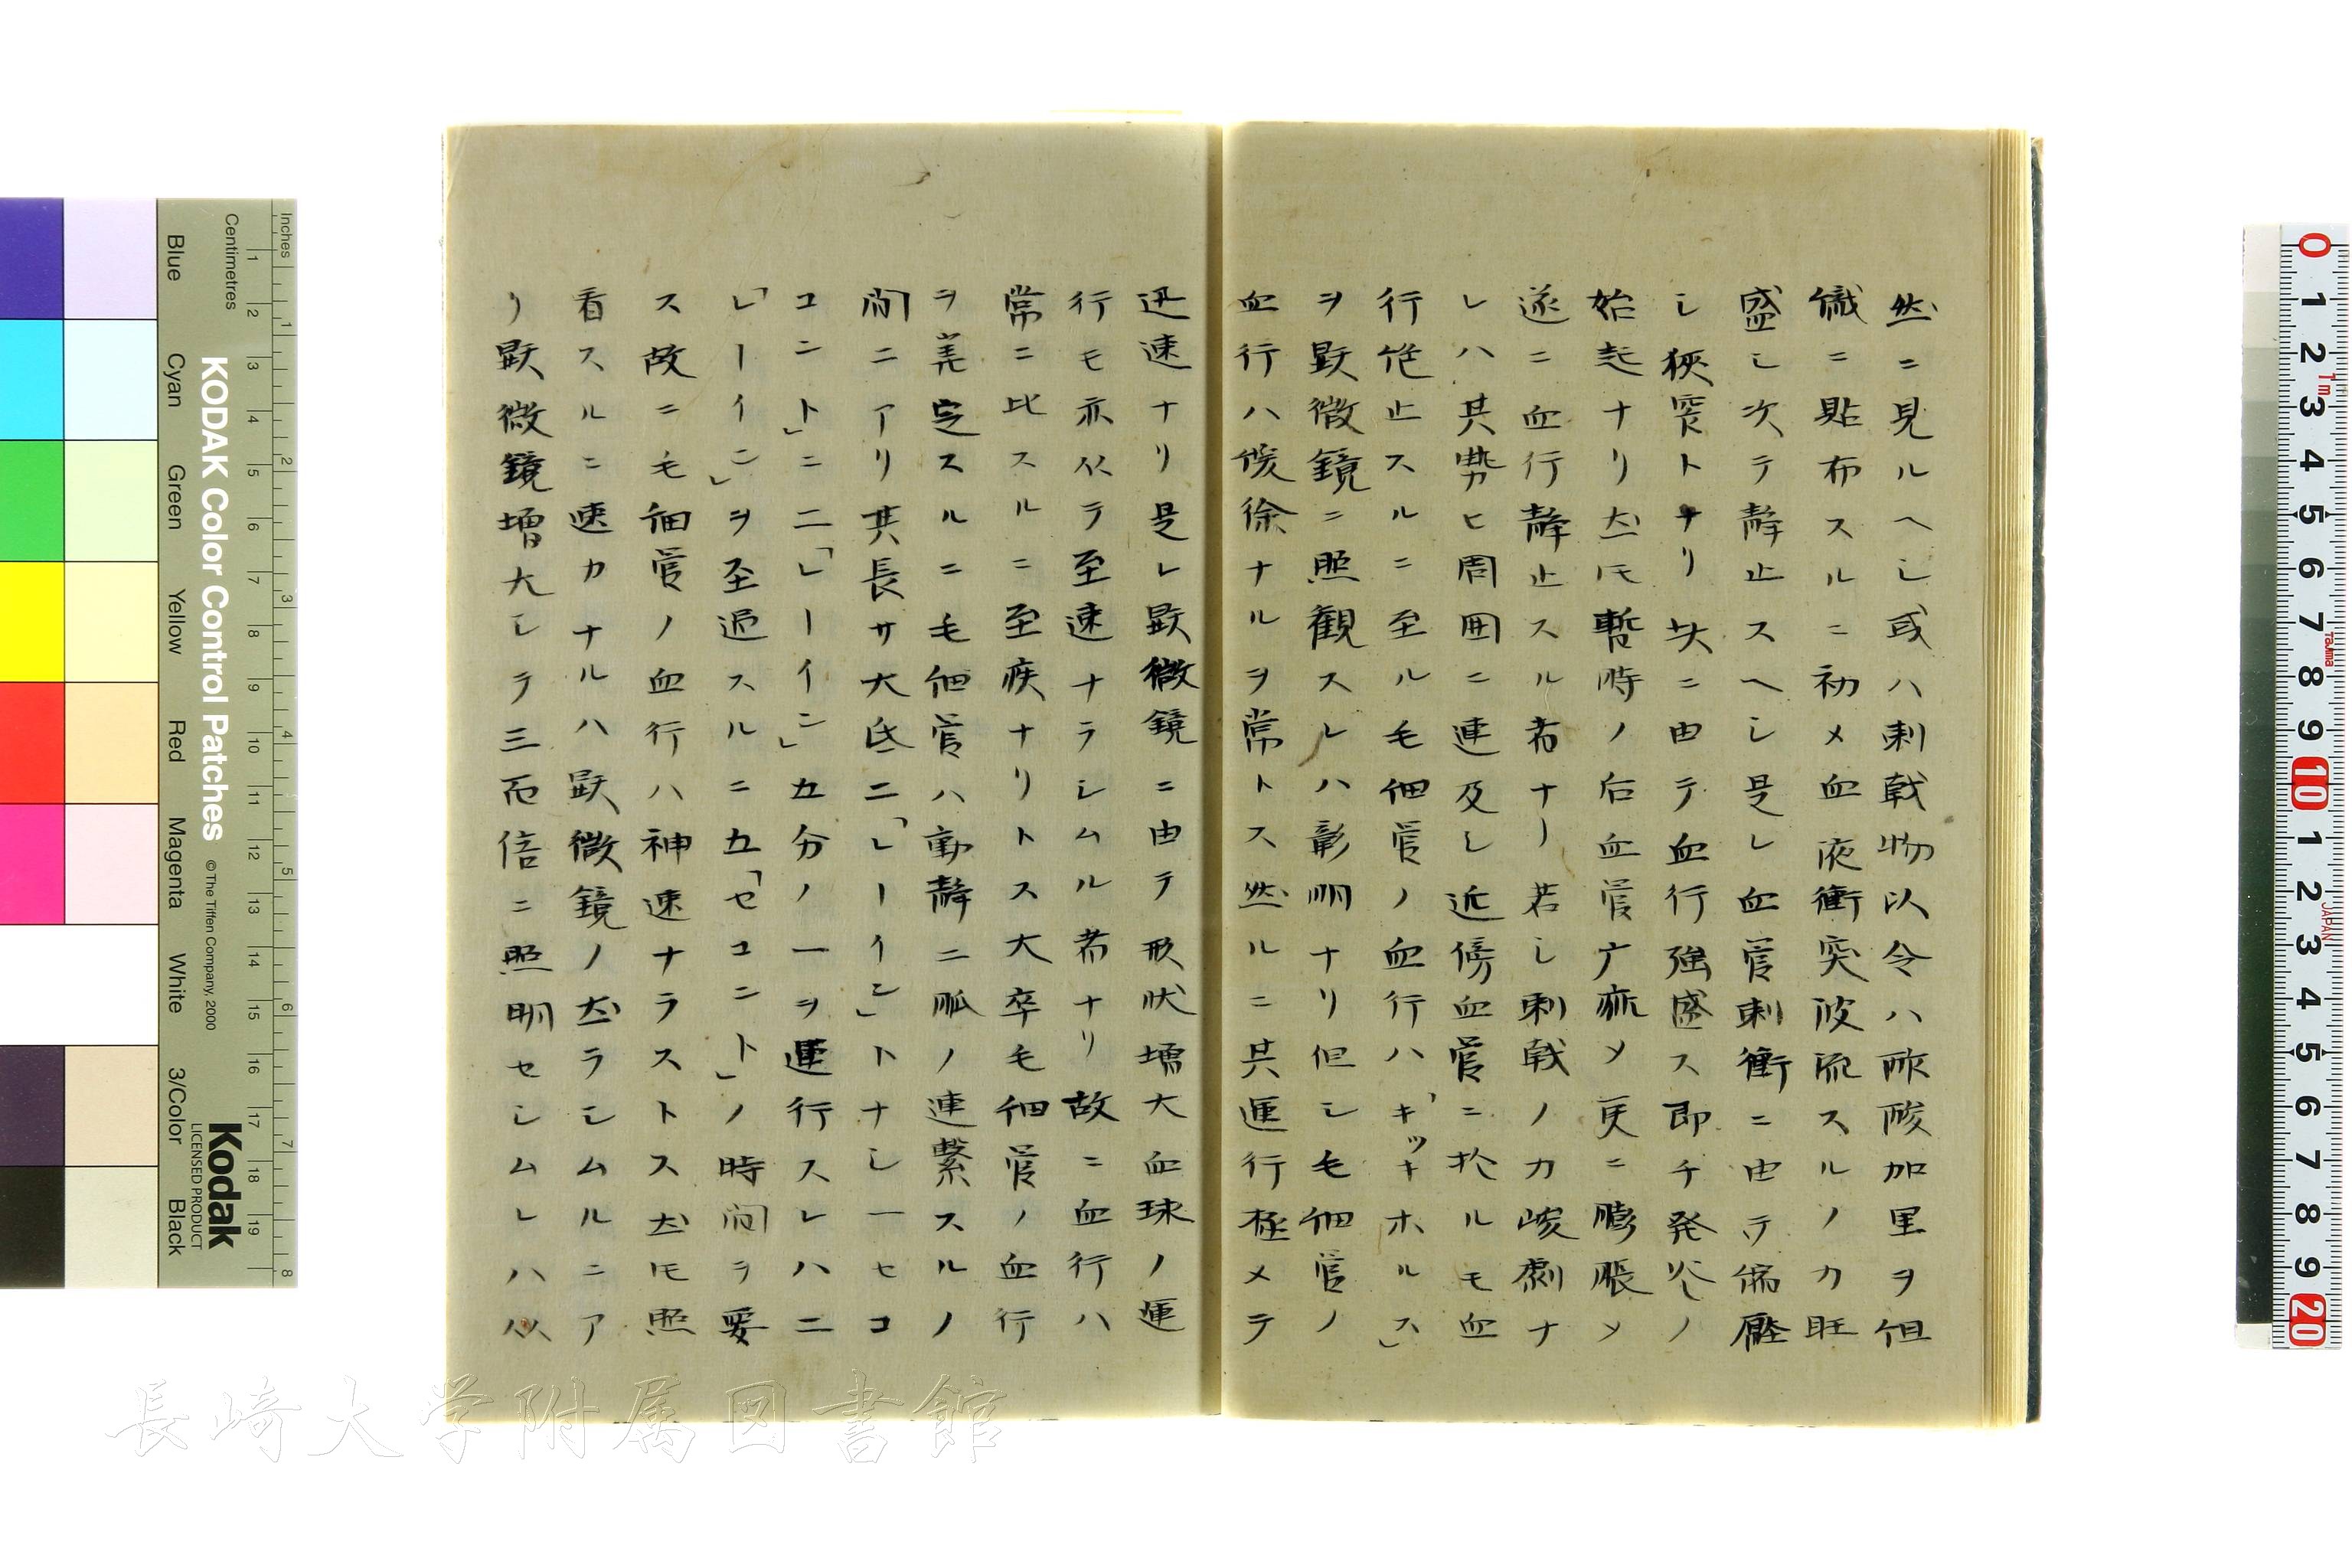 然ニ見ルヘシ或ハ刺戟物以令ハ酸加里ヲ但
微ニ貼布スルニ初メ血液衝突波流スルノカ旺
盛シ次テ静止スヘシ是レ血管刺衝ニ由テ偏壓
シ狭窄トナリ夫ニ由テ血行強盛ス即チ発炎ノ
始起ナリ𪜈暫時ノ后血管广痲メ更ニ膨脹メ
遂ニ血行静止スル者ナリ若シ刺戟ノ力峻劇ナ
レハ其勢ヒ周囲ニ連及シ近傍血管ニ於ルモ血
行絶止スルニ至ル毛細管ノ血行ハ「キツキホルス」
ヲ顕微鏡ニ照観スレハ彰明ナリ但シ毛細管ノ
血行ハ緩徐ナルヲ常トス然ルニ其運行極メテ
迅速ナリ是レ顕微鏡ニ由テ形状増大血球ノ運
行モ亦以テ至速ナラシムル者ナリ故ニ血行ハ
常ニ比スルニ至疾ナリトス大卒毛細管ノ血行
ヲ定スルニ毛細管ハ動静二脈ノ連繋スルノ
間ニアリ其長サ大底二「レーイン」トナシ一セコ
コント」ニ二「レーイン」五分ノ一ヲ運行スレハ二
「レーイン」ヲ至過スルニ五「セコント」ノ時間ヲ要
ス故ニ毛細管ノ血行ハ神速ナラストス𪜈照
看スルニ速カナルハ顕微鏡ノ然ラシムルニア
リ顕微鏡増大シテ三百倍ニ照明セシムレハ以
長崎大学附属図書館
Inches
Centimetres
KODAK Color Control Patches
© The Tiffen Company, 2000
Kodak
LICENSED PRODUCT
Blue
Cyan
Green
Yellow
Red
Magenta
White
3/Color
Black
1 2 3 4 5 6 7 8 9 10 11 12 13 14 15 16 17 18 19
1 2 3 4 5 6 7 8
0 1 2 3 4 5 6 7 8 9 10 1 2 3 4 5 6 7 8 9 20
1m
Tajima
JAPAN